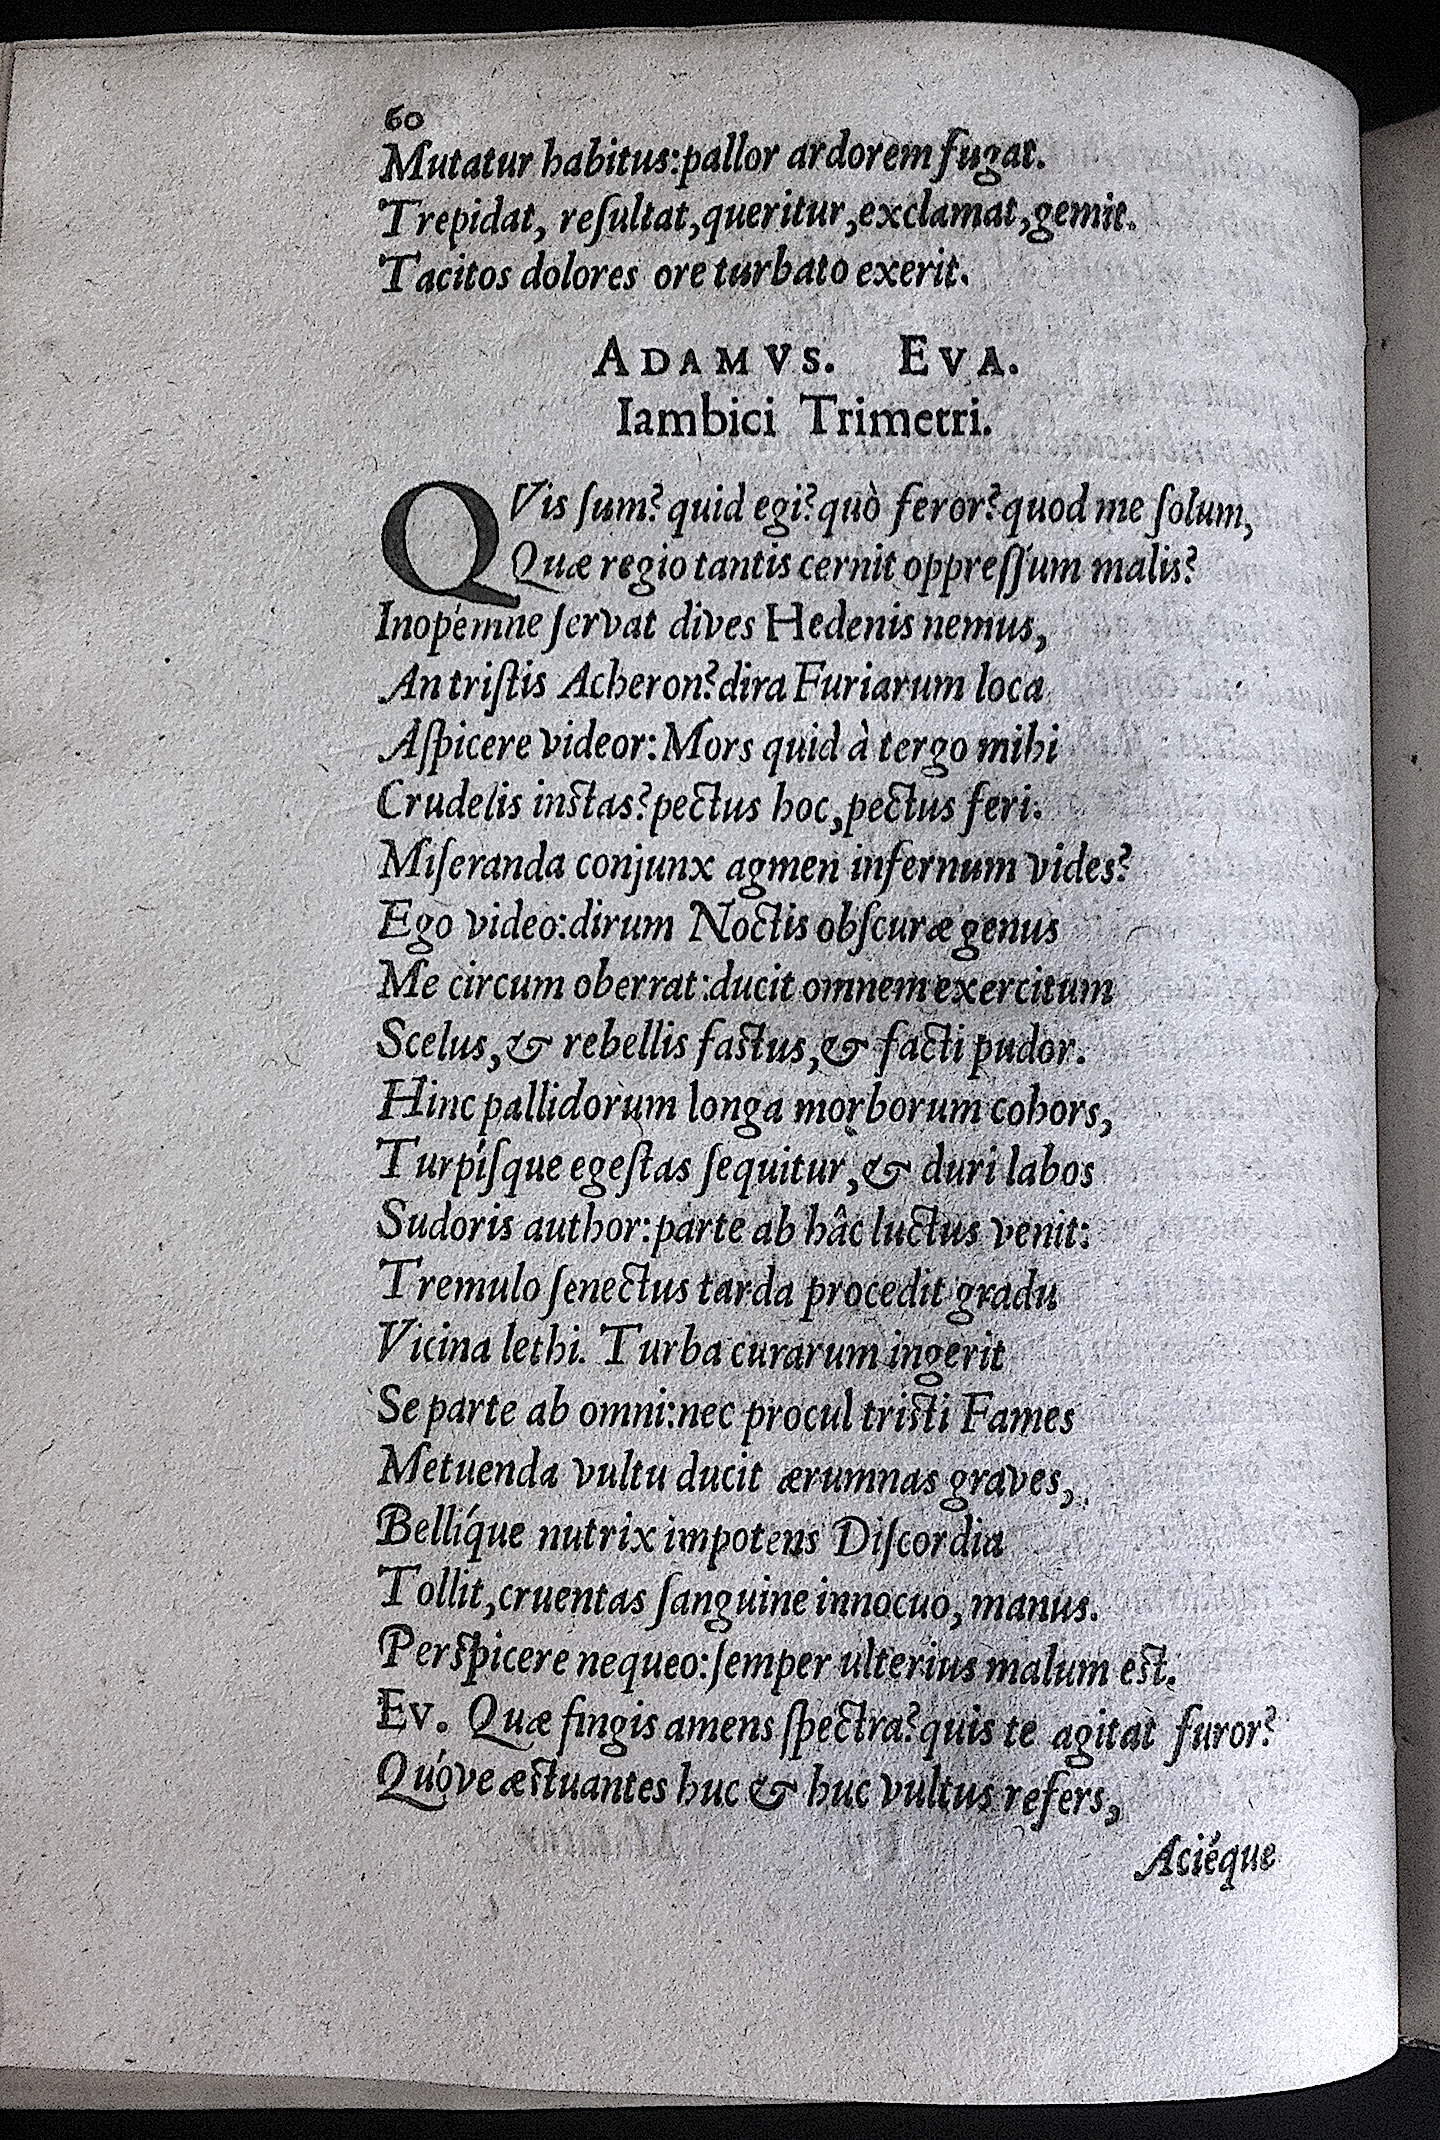 60
Mutatur habitus:pallor ardorem fugat.
Trepidat, reſultat,queritur,exclamat,gemit.
Tacitos dolores ore turbato exerit.
ADAMVS. EVA.
Iambici Trimetri.
QVis ſum? quid egi? quò feror? quod me ſolum,
Quæ regio tantis cernit oppreſſum malis?
Inopémne ſervat dives Hedenis nemus,
An triſtis Acheron? dira Furiarum loca
Aſpicere videor: Mors quid à tergo mihi
Crudelis inſtas? pectus hoc, pectus feri.
Miſeranda conjunx agmen infernum vides?
Ego video:dirum Noctis obſcuræ genus
Me circum oberrat:ducit omnem exercitum
Scelus, & rebellis faſtus, & facti pudor.
Hinc pallidorum longa morborum cohors,
Turpíſque egeſtas ſequitur, & duri labos
Sudoris author: parte ab hâc luctus venit:
Tremulo ſenectus tarda procedit gradu
Vicina lethi. Turba curarum ingerit
Se parte ab omni:nec procul triſti Fames
Metuenda vultu ducit ærumnas graves,
Bellíque nutrix impotens Diſcordia
Tollit,cruentas ſanguine innocuo, manus.
Perſpicere nequeo:ſemper ulterius malum eſt.
Ev. Quæ fingis amens ſpectra? quis te agitat furor?
Quóve æſtuantes huc & huc vultus refers,
Aciéque